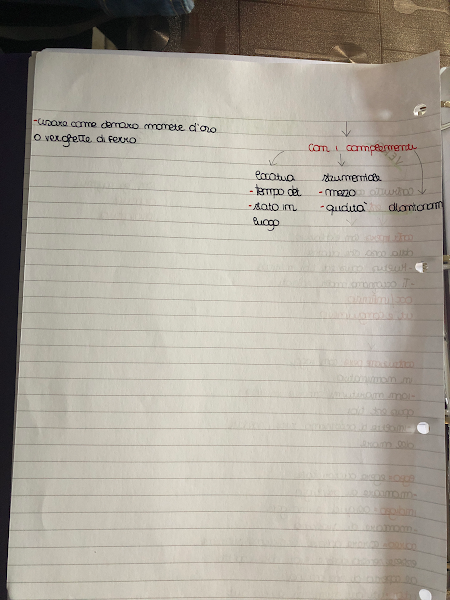 -usare come denaro monete d'oro
o verghette di ferro
con i complementi
locativa
- tempo det
- stato in
luogo
strumentale
- mezzo
- qualità
allontanam